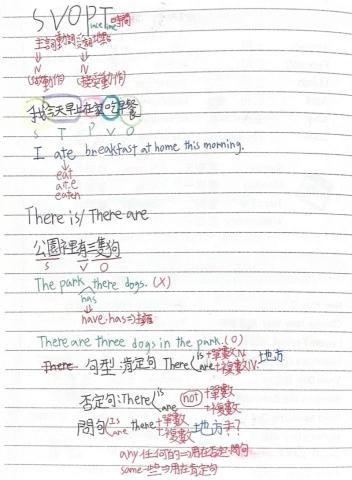 SVOPT 時間
主詞 動詞 受詞 地點
N N
做動作 接受動作
我今天早上在家吃早餐
S T P V O
I ate breakfast at home this morning.
eat
ate
eaten
There is/There are
公園裡有三隻狗
S V O
The park there dogs. (X)
has
have.has=>擁有
There are three dogs in the park. (O)
There 句型:肯定句 There is +單數N. 地方
are +複數N.
否定句:There is not +單數
are +複數
問句 Is there +單數 地方?
are +複數
any 任何的=>用在否定.問句
some 一些=>用在肯定句